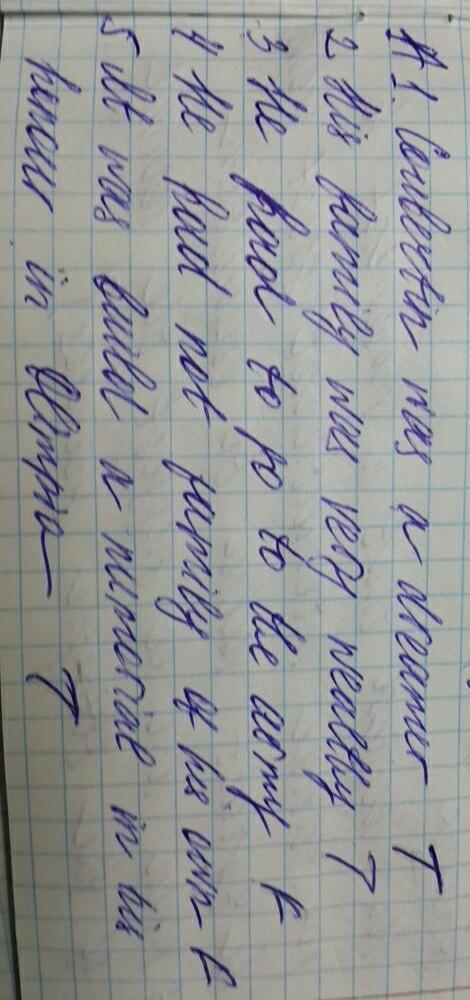 №1. Coubertin was a dreamer T
2 His family was very wealthy T
3 He had to go to the army F
4 He had not family of his own F
5 It was build a numerial in his
honour in Olimpia T